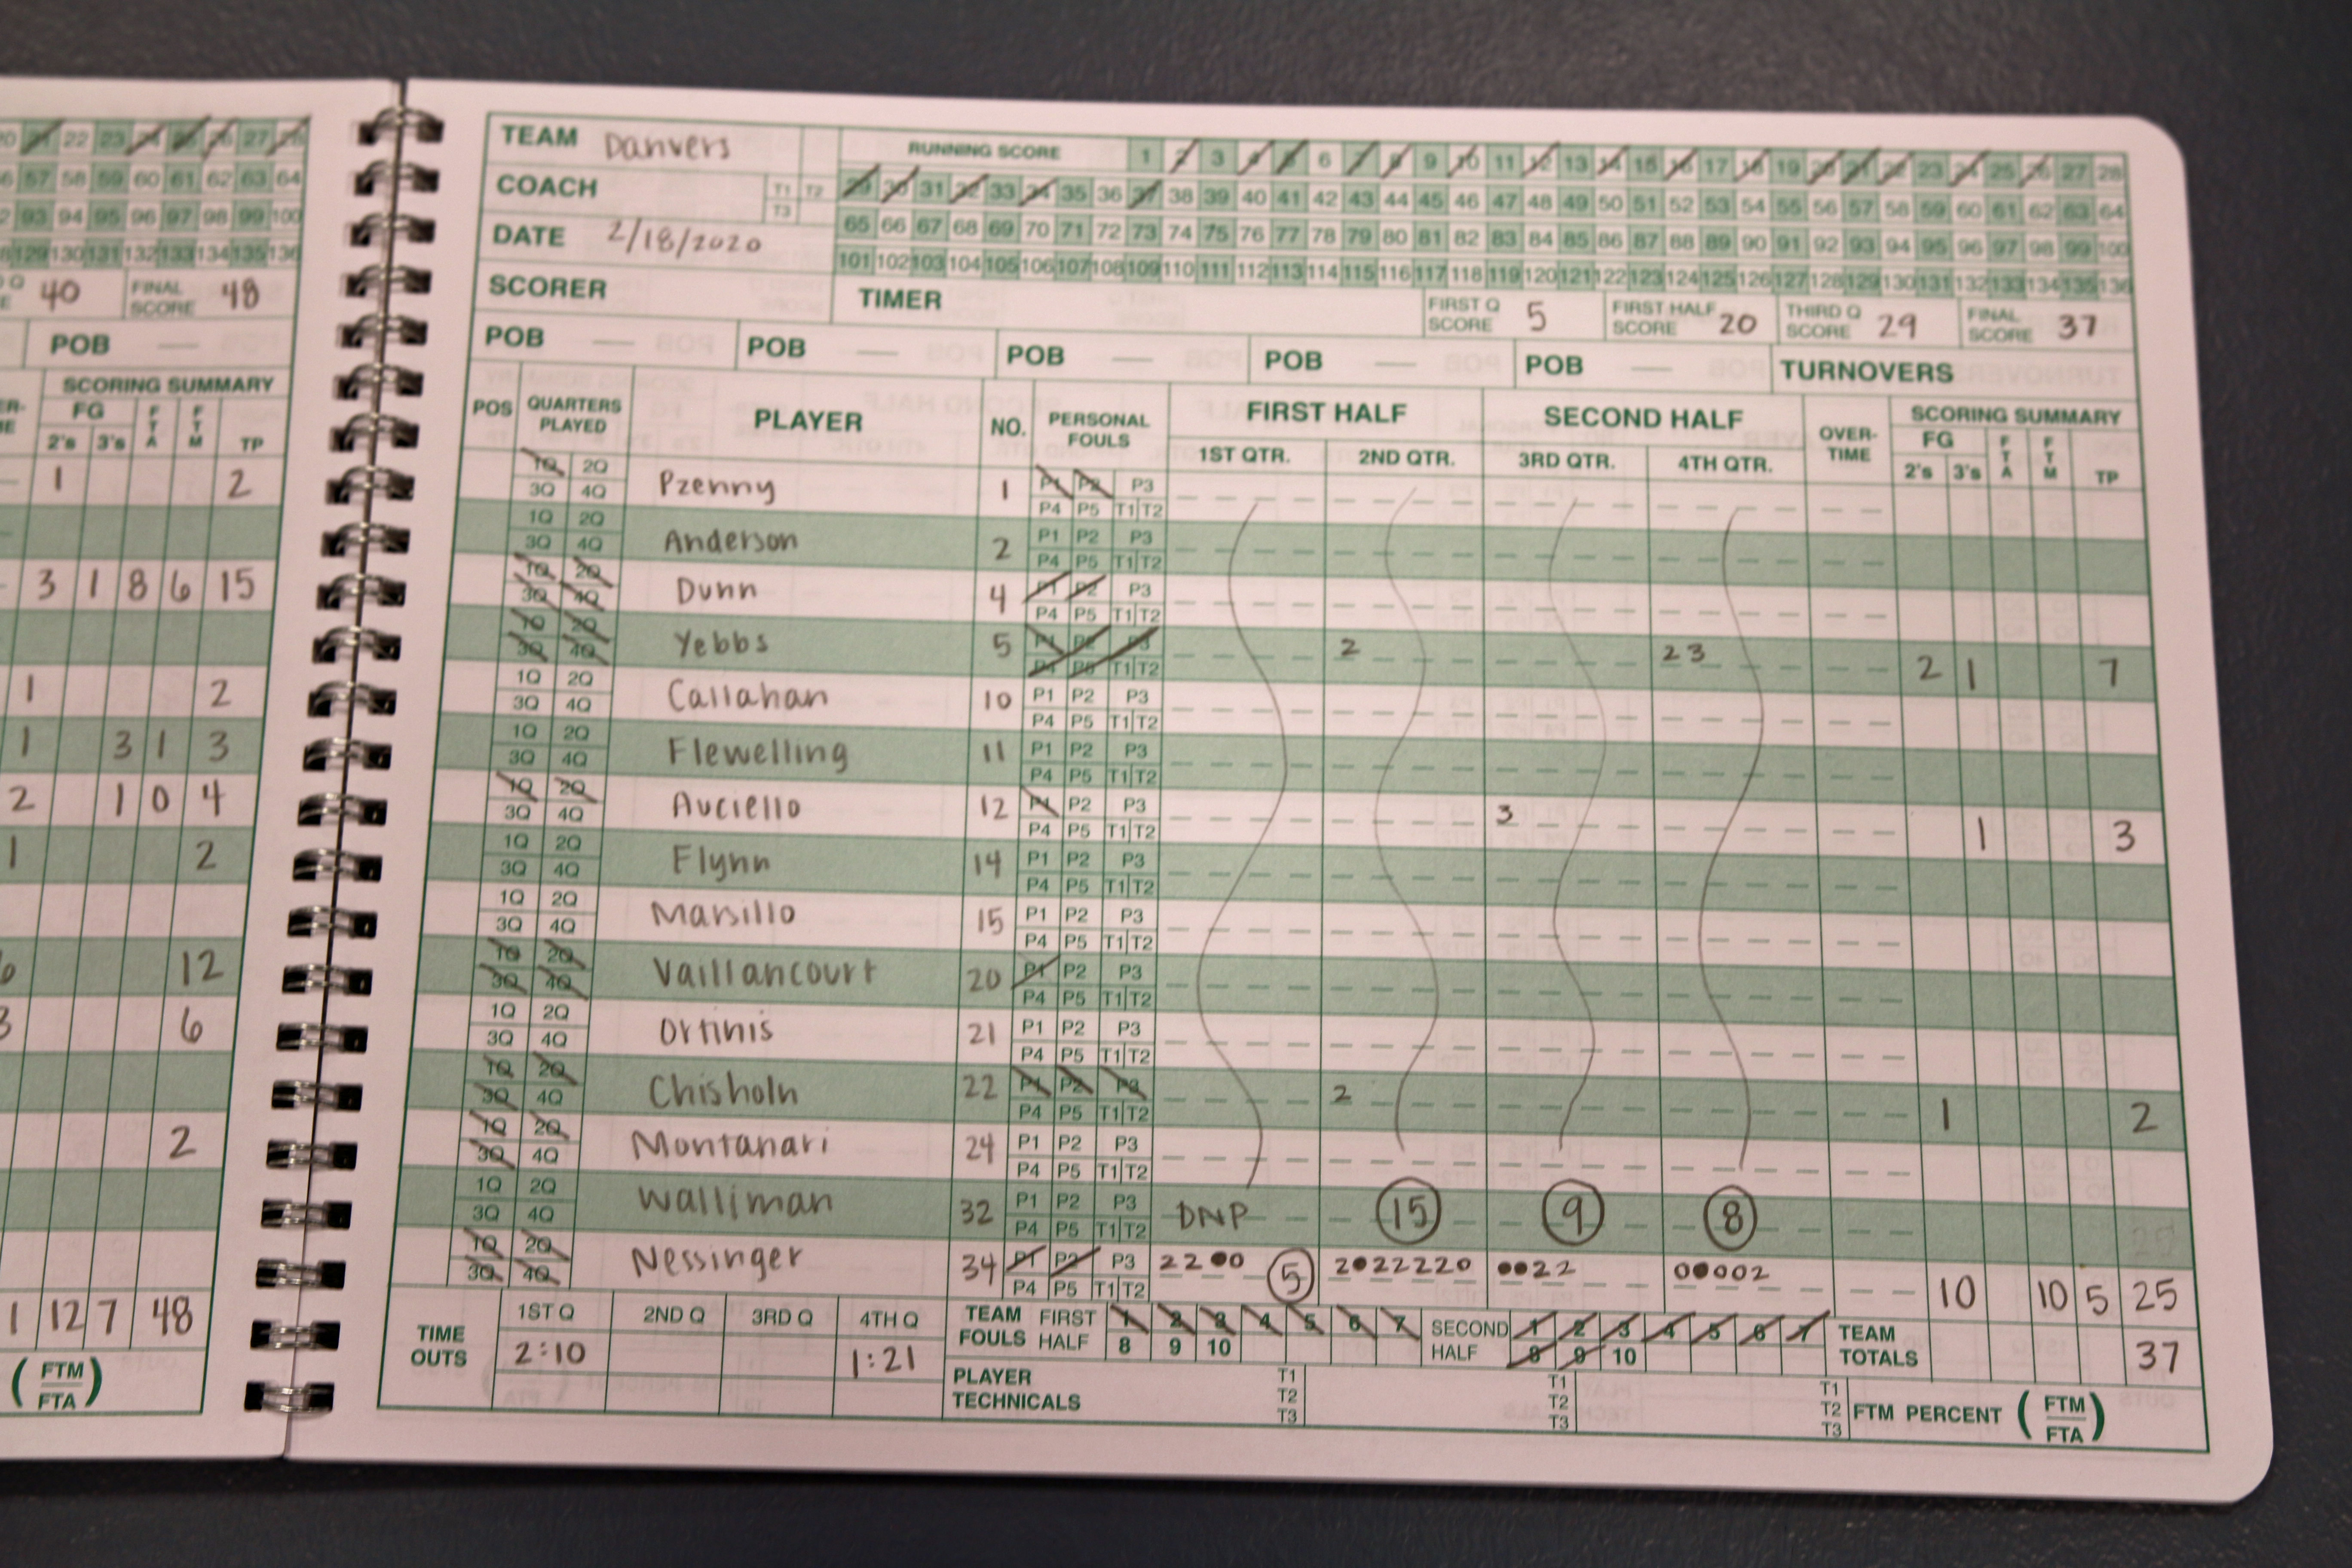 20 21 22 23 24 25 26 27 28
56 57 58 59 60 61 62 63 64
92 93 94 95 96 97 98 99 100
128 129 130 131 132 133 134 135 136
40 FINAL SCORE 48
POB
SCORING SUMMARY
FG FTA FTM TP
2's 3's
1 2
3 1 8 6 15
1 2
1 3 1 3
2 1 0 4
1 2
6 12
3 6
2
1 12 7 48
( FTM / FTA )
TEAM Danvers RUNNING SCORE 1 2 3 4 5 6 7 8 9 10 11 12 13 14 15 16 17 18 19 20 21 22 23 24 25 26 27 28
COACH T1 T2 T3 29 30 31 32 33 34 35 36 37 38 39 40 41 42 43 44 45 46 47 48 49 50 51 52 53 54 55 56 57 58 59 60 61 62 63 64
DATE 2/18/2020 65 66 67 68 69 70 71 72 73 74 75 76 77 78 79 80 81 82 83 84 85 86 87 88 89 90 91 92 93 94 95 96 97 98 99 100
101 102 103 104 105 106 107 108 109 110 111 112 113 114 115 116 117 118 119 120 121 122 123 124 125 126 127 128 129 130 131 132 133 134 135 136
SCORER TIMER FIRST Q SCORE 5 FIRST HALF SCORE 20 THIRD Q SCORE 29 FINAL SCORE 37
POB — POB — POB — POB — POB — TURNOVERS
POS QUARTERS PLAYED PLAYER NO. PERSONAL FOULS FIRST HALF SECOND HALF OVER-TIME SCORING SUMMARY
1ST QTR. 2ND QTR. 3RD QTR. 4TH QTR. FG 2's 3's FTA FTM TP
1Q 2Q 3Q 4Q Pzenny 1 P1 P2 P3 P4 P5 T1 T2
1Q 2Q 3Q 4Q Anderson 2 P1 P2 P3 P4 P5 T1 T2
1Q 2Q 3Q 4Q Dunn 4 P1 P2 P3 P4 P5 T1 T2
1Q 2Q 3Q 4Q Yebbs 5 P1 P2 P3 P4 P5 T1 T2 2 2 3 2 1 7
1Q 2Q 3Q 4Q Callahan 10 P1 P2 P3 P4 P5 T1 T2
1Q 2Q 3Q 4Q Flewelling 11 P1 P2 P3 P4 P5 T1 T2
1Q 2Q 3Q 4Q Auciello 12 P1 P2 P3 P4 P5 T1 T2 3 1 3
1Q 2Q 3Q 4Q Flynn 14 P1 P2 P3 P4 P5 T1 T2
1Q 2Q 3Q 4Q Marsillo 15 P1 P2 P3 P4 P5 T1 T2
1Q 2Q 3Q 4Q Vaillancourt 20 P1 P2 P3 P4 P5 T1 T2
1Q 2Q 3Q 4Q Ortinis 21 P1 P2 P3 P4 P5 T1 T2
1Q 2Q 3Q 4Q Chisholn 22 P1 P2 P3 P4 P5 T1 T2 2 1 2
1Q 2Q 3Q 4Q Montanari 24 P1 P2 P3 P4 P5 T1 T2
1Q 2Q 3Q 4Q Walliman 32 P1 P2 P3 P4 P5 T1 T2 DNP 15 9 8
1Q 2Q 3Q 4Q Nessinger 34 P1 P2 P3 P4 P5 T1 T2 22●0 5 2●22220 ●●22 0●002 10 10 5 25
TIME OUTS 1ST Q 2:10 2ND Q 3RD Q 4TH Q 1:21 TEAM FOULS FIRST HALF 1 2 3 4 5 6 7 8 9 10 SECOND HALF 1 2 3 4 5 6 7 8 9 10 TEAM TOTALS 37
PLAYER TECHNICALS T1 T2 T3 T1 T2 T3 T1 T2 T3 FTM PERCENT ( FTM / FTA )